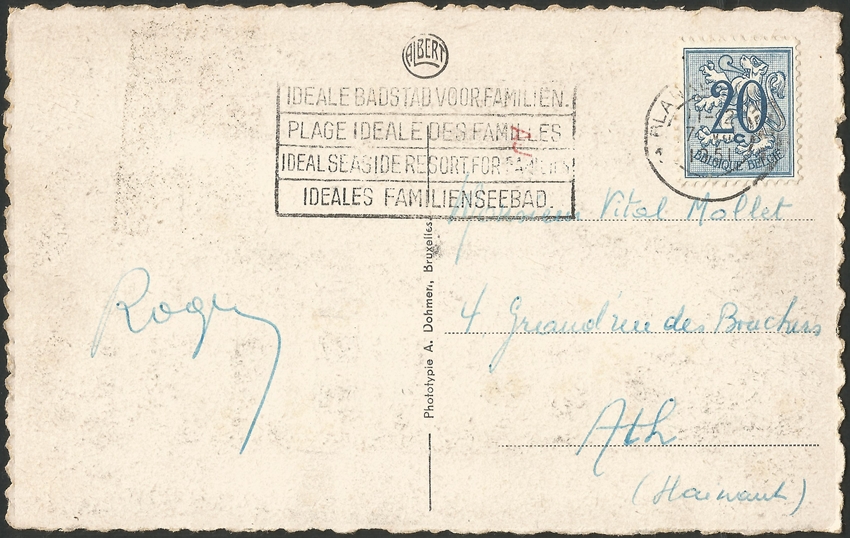 ALBERT
IDEALE BADSTAD VOOR FAMILIEN.
PLAGE IDEALE DES FAMILLES
IDEAL SEASIDE RESORT FOR FAMILIES
IDEALES FAMILIENSEEBAD.
20
c
BELGIQUE BELGIË
Phototypie A. Dohmen, Bruxelles
Roger
Monsieur Vital Mollet
4 Grand'rue des Bouchers
Ath
(Hainaut)